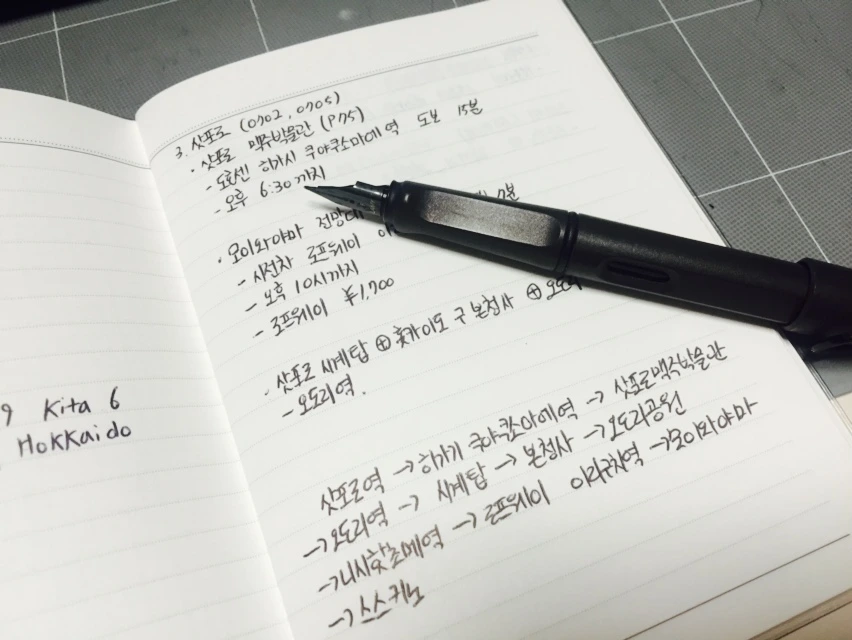 9 Kita 6
Hokkaido
3. 삿포로 (0702, 0705)
· 삿포로 맥주박물관 (P175)
- 도호센 히가시 쿠야쿠쇼마에역 도보 15분
- 오후 6:30까지
· 모이와야마 전망대
- 시전차 로프웨이 분
- 오후 10시까지
- 로프웨이 ¥1,700
· 삿포로 시계탑 ⊕ 홋카이도 구 본청사 ⊕
- 오도리역.
삿포로역 → 히가시 쿠야쿠쇼마에역 → 삿포로맥주박물관
→ 오도리역 → 시계탑 → 본청사 → 오도리공원
→ 니시핫초메역 → 로프웨이 이리구치역 → 모이와야마
→ 스스키노